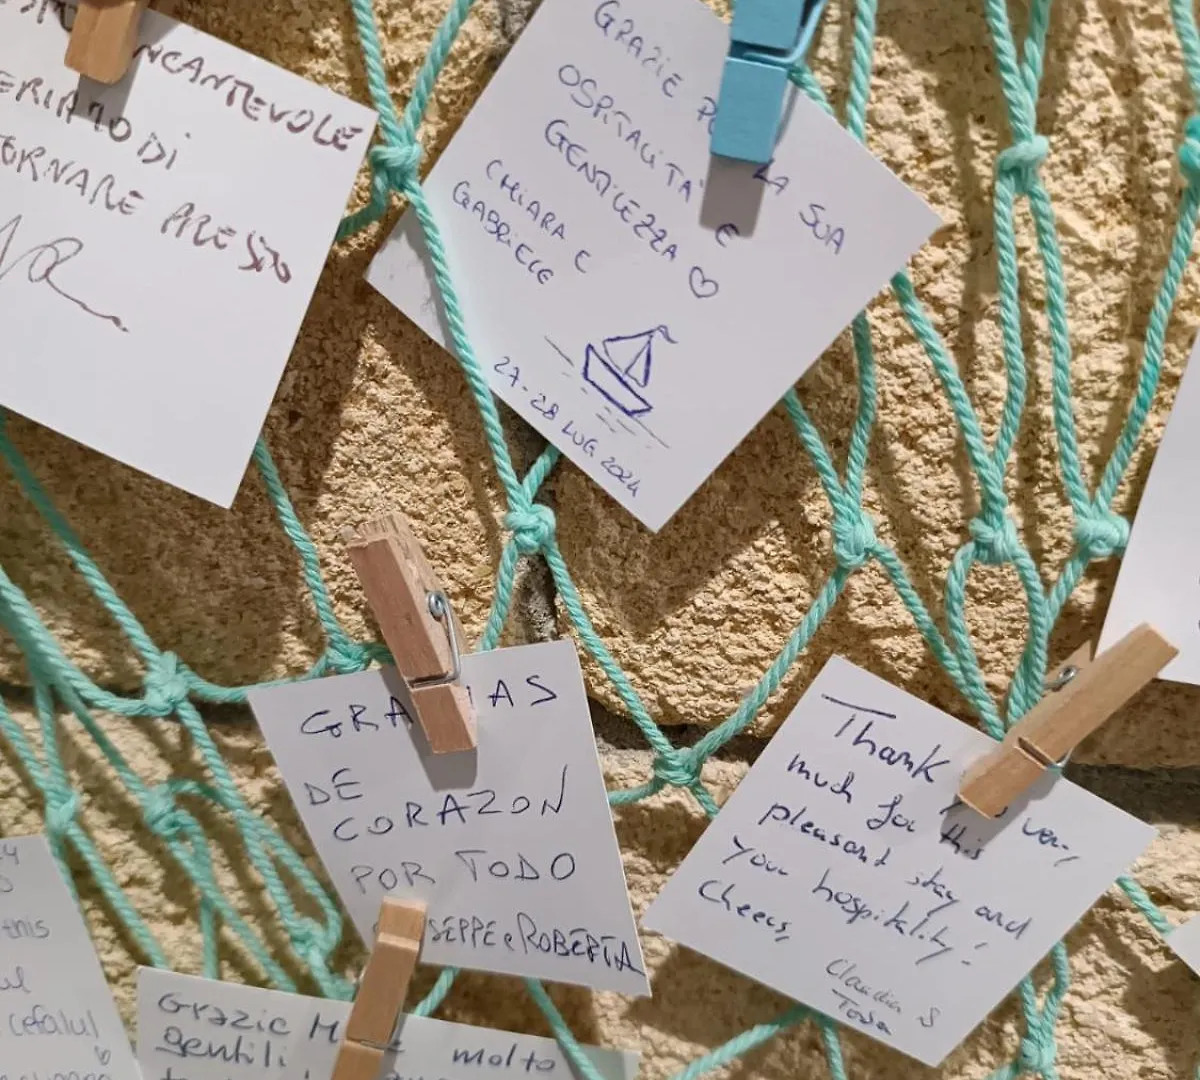 INCANTEVOLE
DI
PRESTO
GRAZIE LA SUA
OSPITALITA' E
GENTILEZZA ♡
CHIARA E
GABRIELE
27-28 LUG 2024
GRA IAS
DE
CORAZON
POR TODO
SEPPE e ROBERTA
Thank very
much for this
pleasant stay and
your hospitality!
Cheers,
Claudia S
this
cefalul
Grazie
gentili molto